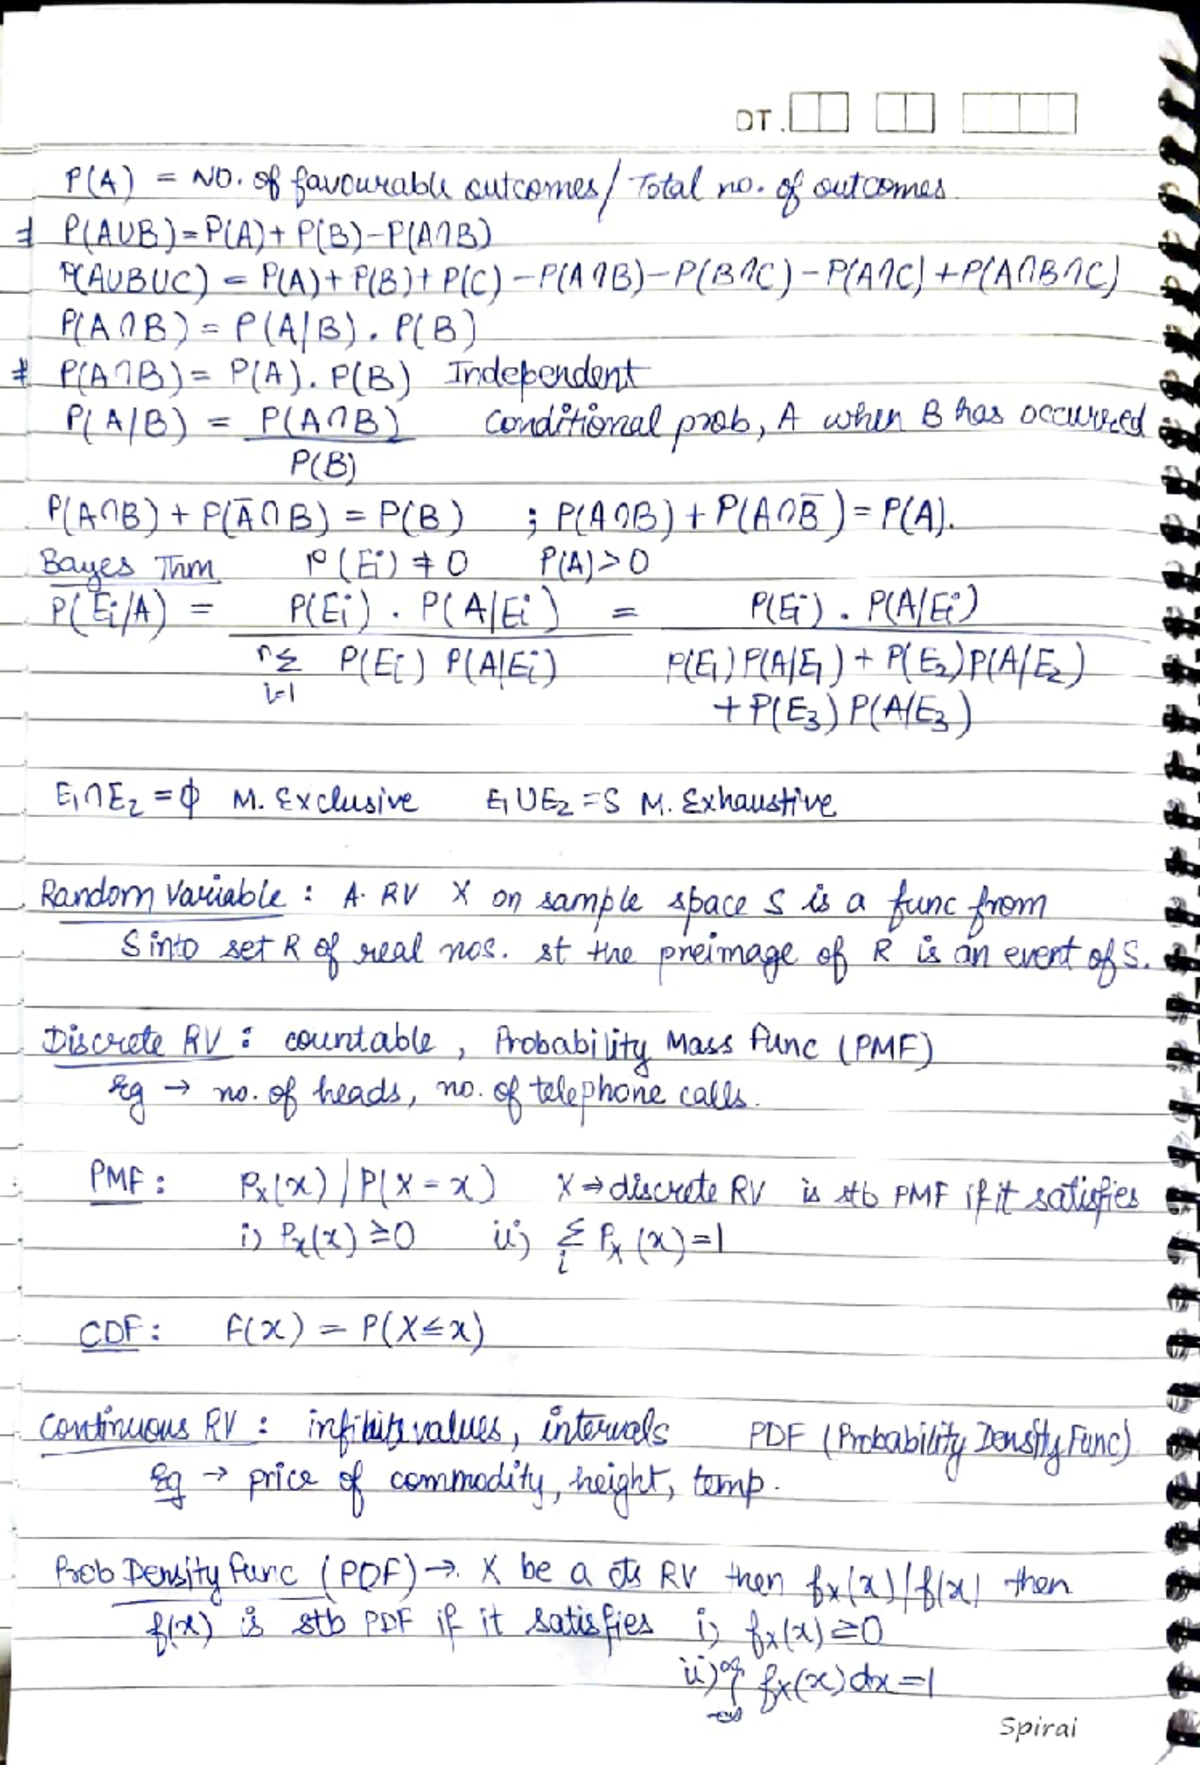 DT.
P(A) = NO. of favourable outcomes / Total no. of outcomes
P(A∪B) = P(A) + P(B) - P(A∩B)
P(A∪B∪C) = P(A) + P(B) + P(C) - P(A∩B) - P(B∩C) - P(A∩C) + P(A∩B∩C)
P(A∩B) = P(A/B) . P(B)
* P(A∩B) = P(A) . P(B) Independent
P(A/B) = P(A∩B) Conditional prob, A when B has occurred
P(B)
P(A∩B) + P(Ā∩B) = P(B) ; P(A∩B) + P(A∩B̄) = P(A).
Bayes Thm P(Ei) ≠ 0 P(A) > 0
P(Ei/A) = P(Ei) . P(A/Ei) = P(Ei) . P(A/Ei)
n Σ P(Ei) P(A/Ei) P(E1) P(A/E1) + P(E2) P(A/E2)
i=1 + P(E3) P(A/E3)
E1∩E2 = ϕ M. Exclusive E1∪E2 = S M. Exhaustive
Random Variable : A. RV X on sample space S is a func from
S into set R of real nos. st the preimage of R is an event of S.
Discrete RV : countable, Probability Mass Func (PMF)
Eg → no. of heads, no. of telephone calls.
PMF : Px(x) / P(X = x) X ⇒ discrete RV is stb PMF if it satisfies
i) Px(x) ≥ 0 ii) Σ Px (x) = 1
i
CDF : F(x) = P(X ≤ x)
Continuous RV : infinite values, intervals PDF (Probability Density Func)
Eg → price of commodity, height, temp.
Prob Density Func (PDF) → X be a cts RV then fx(x) / f(x) then
f(x) is stb PDF if it satisfies i) fx(x) ≥ 0
ii) ∞ ∫ fx(x) dx = 1
-∞
Spiral